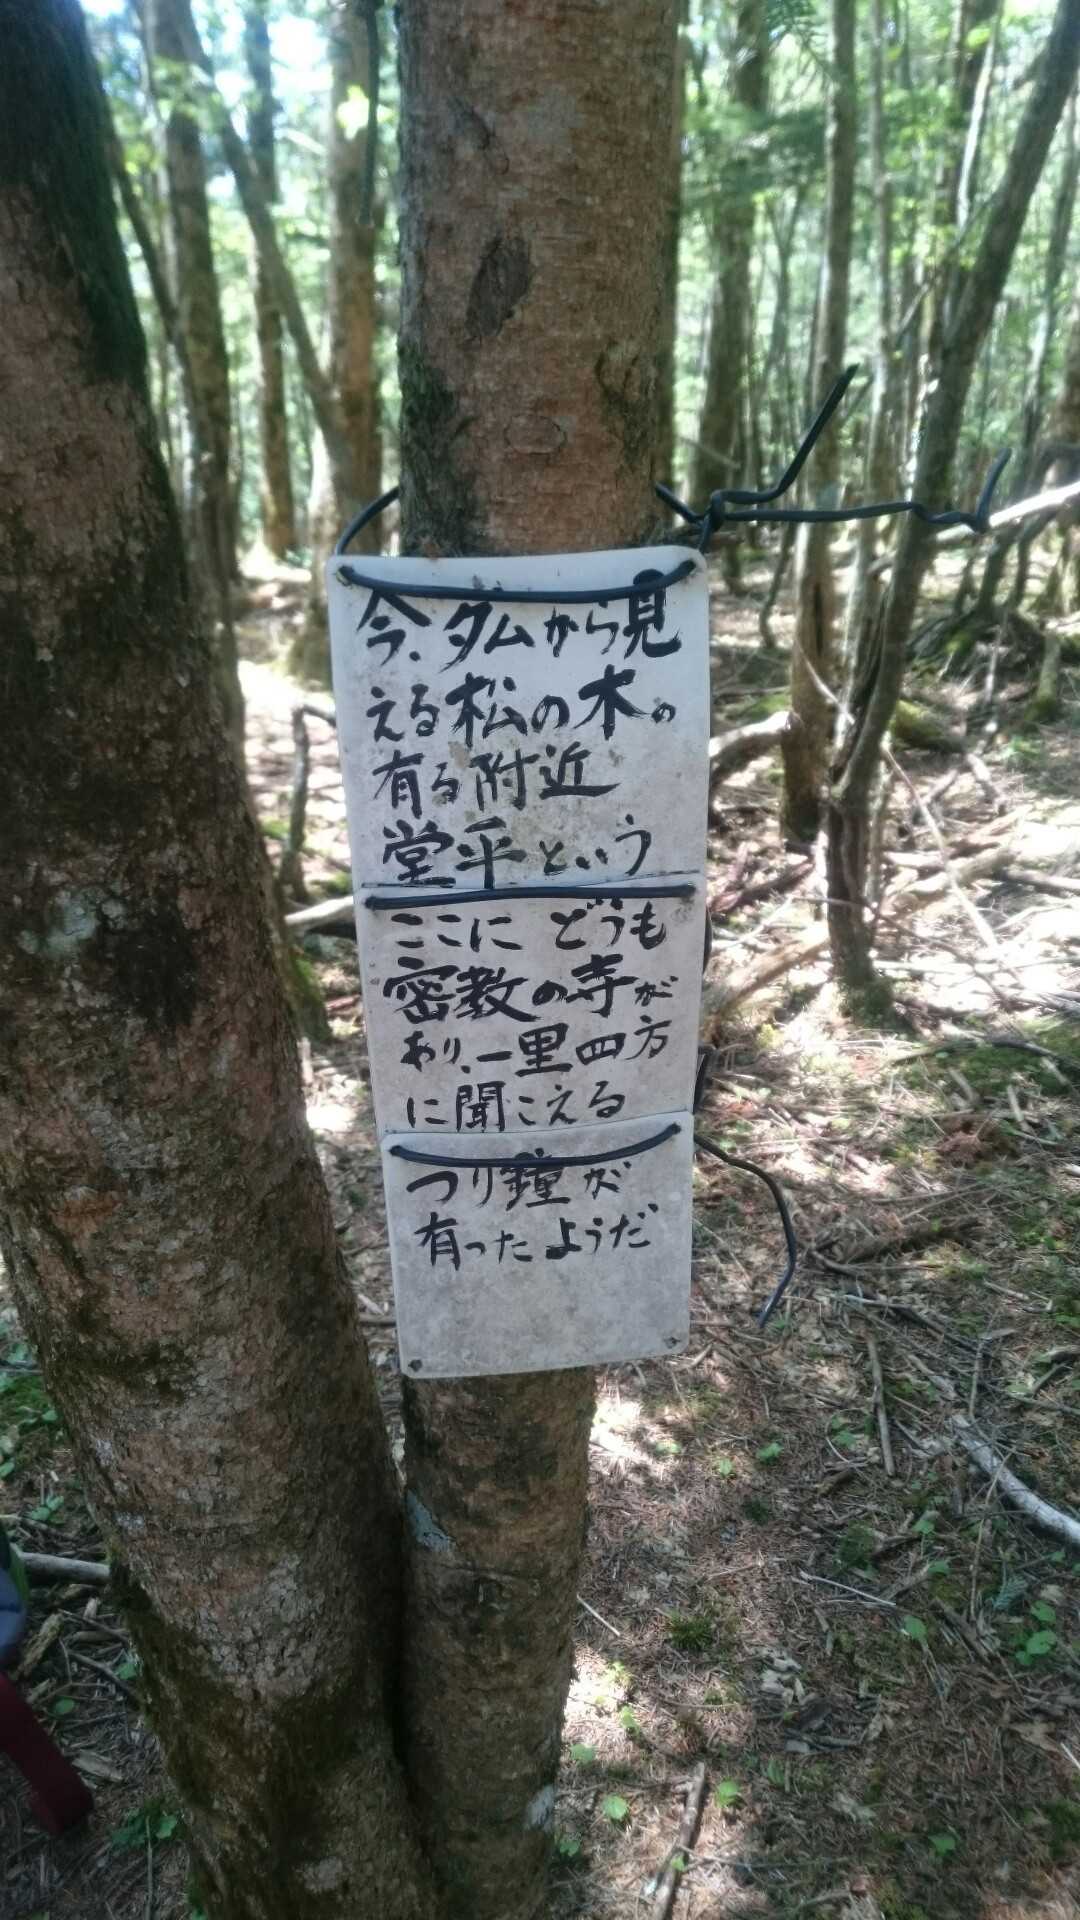 今、ダムから見
える松の木の
有る附近
堂平という
ここに どうも
密教の寺が
あり、一里四方
に聞こえる
つり鐘が
有ったようだ